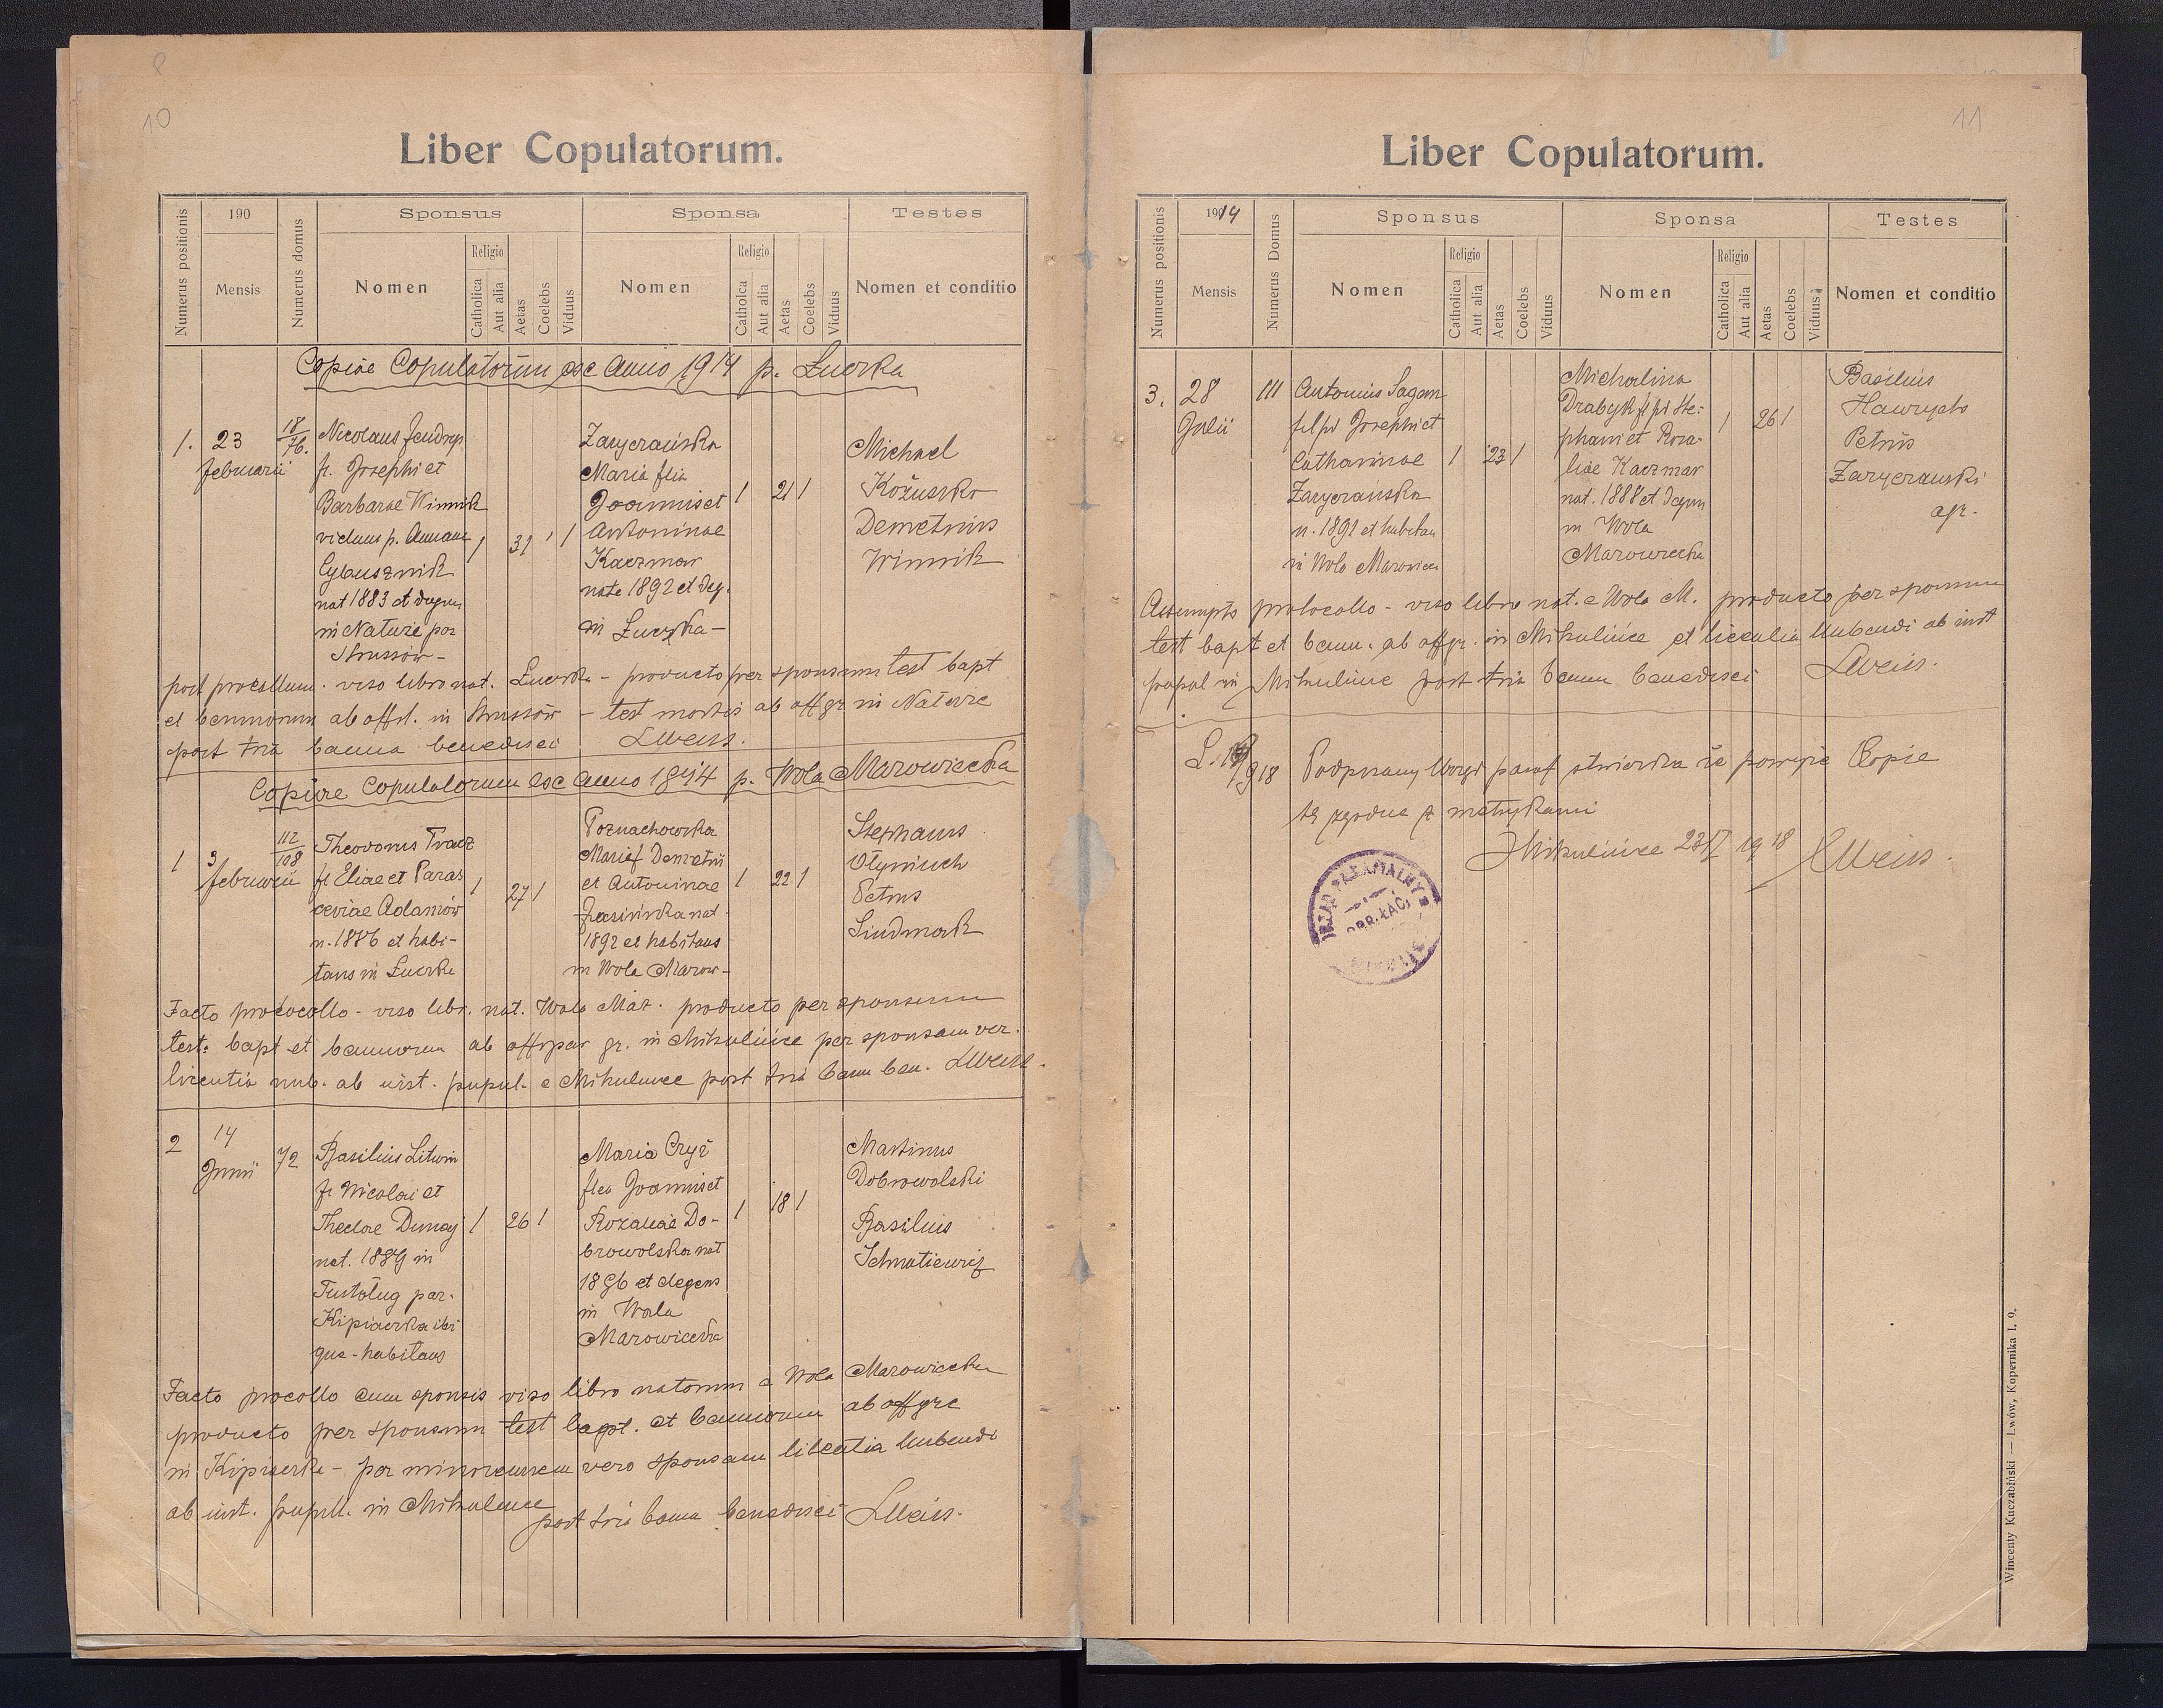 8
10
Liber Copulatorum.
Numerus positionis
190
Mensis
Numerus domus
Sponsus
Nomen
Religio
Catholica
Aut alia
Aetas
Coelebs
Viduus
Sponsa
Nomen
Religio
Catholca
Aut alia
Aetas
Coelebs
Viduus
Testes
Nomen et conditio
Copiae Copulatorum ex Anno 1914 p. Łuczka
1. 23 februarii
18/76.
Nicolaus
fr. Josephi et
Barbarae Winnik
viduus p. Annam
Cybusznik
nat 1883 et degens
in Nałuże par
Strussów -
1 31 1
Zaryczańska
Maria flia
Joannis et
Antoninae
Kaczmar
nata 1892 et deg.
in Łuczka -
1 21 1
Michael
Kożuszko
Demetrius
Winnik
post procollum. viso libro nat. Łuczka - producto per sponsum test bapt
et bannorum ab offl. in Strussów - test mortis ab off gr in Nałuże
post tria banna benedixi LWeiss.
Copiae Copulatorum ex Anno 1914 p. Wola Mazowiecka
1 3 februarii
112/108
Theodorus Tracz
fl Eliae et Paras
ceviae Adamów
n. 1886 et habi-
tans in Łuczka
1 27 1
Poznachowska
Maria f Demetrii
et Antoninae
Jasińska nat.
1892 et habitans
in Wola Mazow-
1 22 1
Stephanus
Olyniuch
Petrus
Lindmark
Facto protocollo - viso libr. nat. Wola Maz. producto per sponsum
test. bapt et bannorum ab off par gr. in Mikulińce per sponsam ver.
licentia nub. ab inst. pupil. e Mikulince post tria bann ben. LWeiss.
2 14 Junii 72
Basilius Litwin
fr Nicolai et
Theclae Dunaj
nat. 1889 in
Tustoług par.
Kipiaczka ibi
que - habitans
1 26 1
Maria Czyż
flia Joannis et
Rozaliae Do-
browolska nat
1896 et degens
in Wola
Mazowiecka
1 18 1
Martinus
Dobrowolski
Basilius
Ichnatiewicz
Facto procollo cum sponsis viso libro natorum e Wola Mazowiecka
producto per sponsum test bapt. et bannorum ab off grc
in Kipiaczka - par minorennem vero sponsam licentia nubendi
ab inst. pupill. in Mikulince
post tria banna benedixi LWeiss.
11
Liber Copulatorum.
Numerus positionis
1914
Mensis
Numerus Domus
Sponsus
Nomen
Religio
Catholica
Aut alia
Aetas
Coelebs
Viduus
Sponsa
Nomen
Religio
Catholica
Aut alia
Aetas
Coelebs
Viduus
Testes
Nomen et conditio
3. 28 Julii 111
Antonius Sagan
Josephi et
Catharinae
Zaryczańska
n. 1891 et habitan
in Wola Mazowiec
1 23 1
Michalina
Drabyk Ste-
phani et Roza-
liae Kaczmar
nat. 1888 et degen
in Wola
Mazowiecka
1 26 1
Basilius
Hawrysh
Petrus
Zaryczański
agr.
Assumpto protocollo - viso libro nat. e Wola M. producto per sponsum
test bapt et bann. ab off gr. in Mikulińce et licentia Nubendi ab inst
pupil in Mikulince post tria banna benedixi LWeiss.
L. /918 Podpisany Urząd paraf stwierdza że powyżsże Kopie
są zgodne z metrykami
Mikulińce 1918 LWeiss.
URZĄD PARAFIALNY
OBR. ŁAC.
Wincenty Kuczabiński — Lwów, Kopernika l. 9.